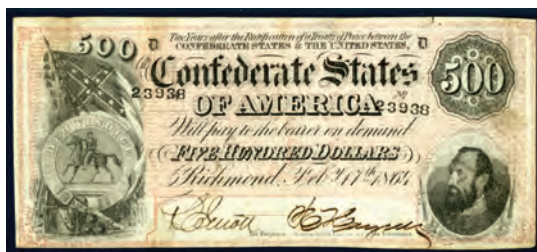 Two Years after the Ratification of a Treaty of Peace between the
CONFEDERATE STATES & THE UNITED STATES,
500 D D
Confederate States 500
23938 No 23938
OF AMERICA
Will pay to the bearer on demand
FIVE HUNDRED DOLLARS
Richmond, Feb'y 17th 1864